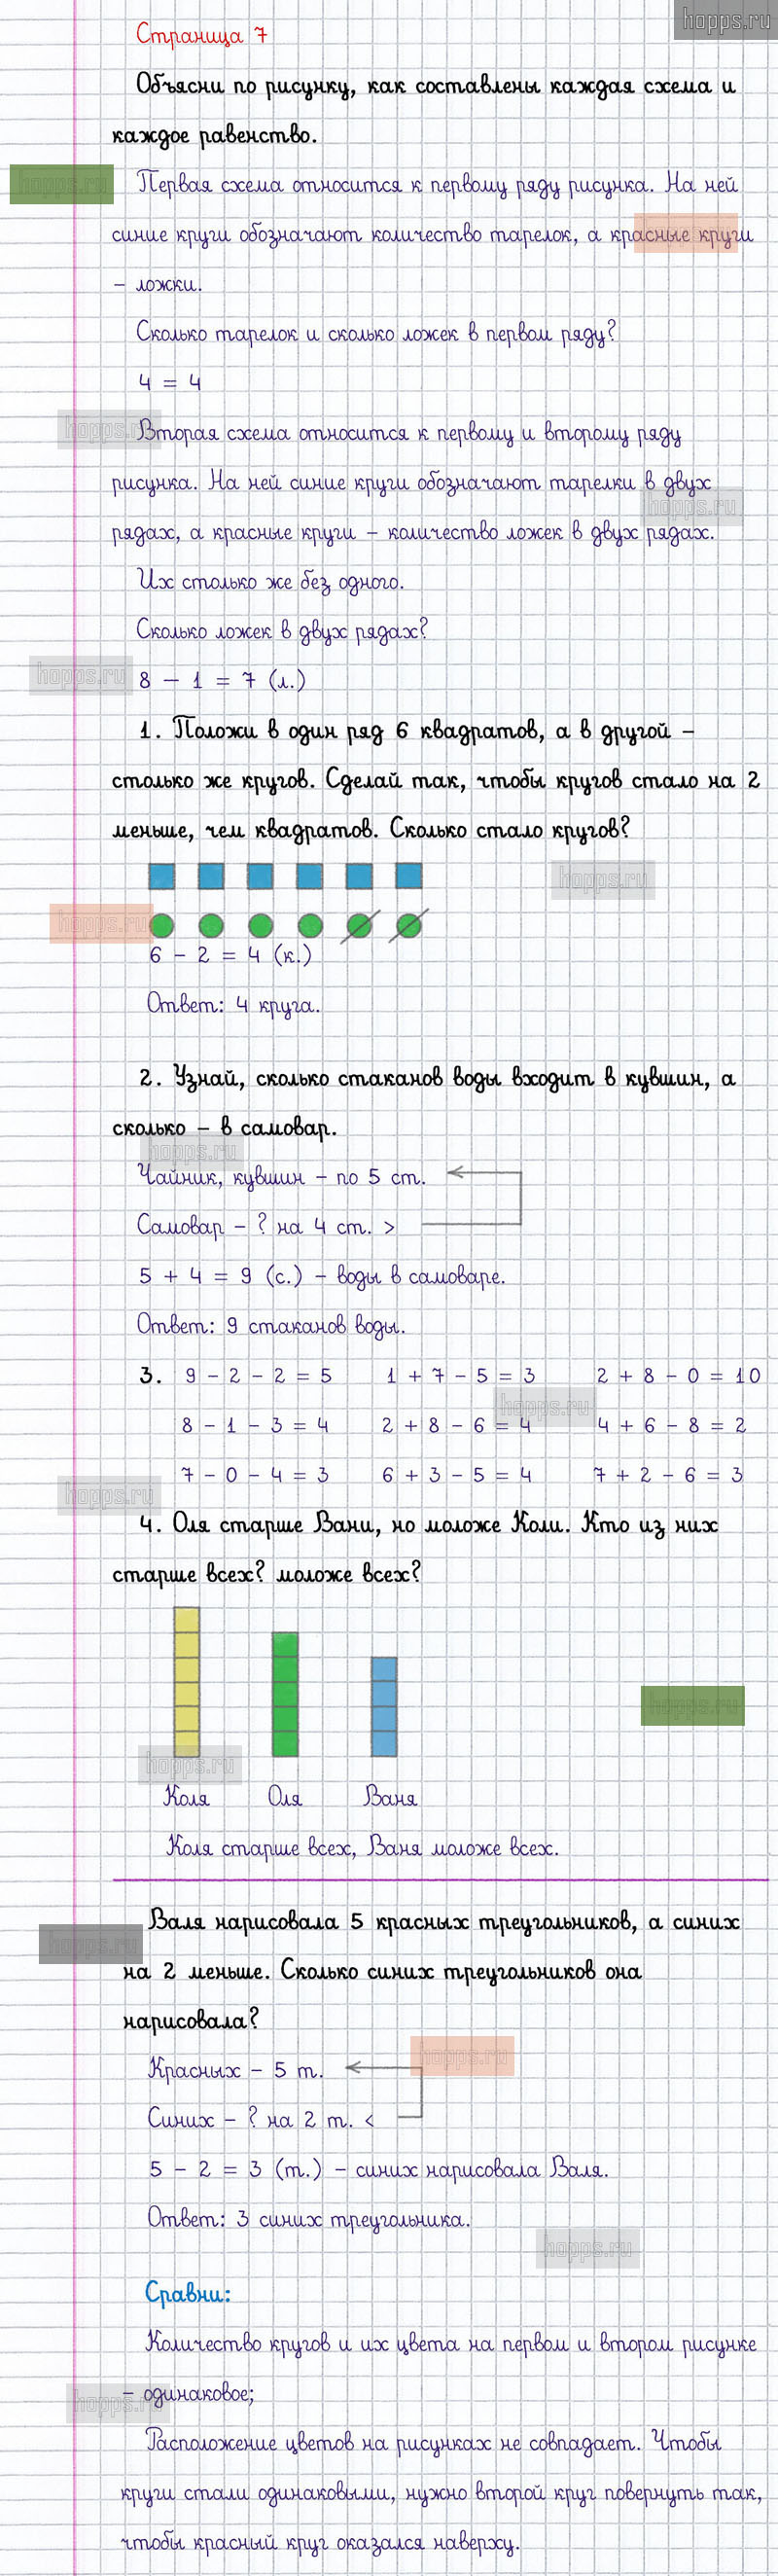 hopps.ru
Страница 7
Объясни по рисунку, как составлены каждая схема и
каждое равенство.
hopps.ru
Первая схема относится к первому ряду рисунка. На ней
синие круги обозначают количество тарелок, а красные круги
– ложки.
Сколько тарелок и сколько ложек в первом ряду?
4 = 4
hopps.ru
Вторая схема относится к первому и второму ряду
рисунка. На ней синие круги обозначают тарелки в двух
hopps.ru
рядах, а красные круги – количество ложек в двух рядах.
Их столько же без одного.
Сколько ложек в двух рядах?
hopps.ru
8 – 1 = 7 (л.)
1. Положи в один ряд 6 квадратов, а в другой –
столько же кругов. Сделай так, чтобы кругов стало на 2
меньше, чем квадратов. Сколько стало кругов?
hopps.ru
hopps.ru
6 – 2 = 4 (к.)
Ответ: 4 круга.
2. Узнай, сколько стаканов воды входит в кувшин, а
сколько – в самовар.
hopps.ru
Чайник, кувшин – по 5 ст.
Самовар – ? на 4 ст. >
5 + 4 = 9 (с.) – воды в самоваре.
Ответ: 9 стаканов воды.
3. 9 – 2 – 2 = 5 1 + 7 – 5 = 3 2 + 8 – 0 = 10
hopps.ru
8 – 1 – 3 = 4 2 + 8 – 6 = 4 4 + 6 – 8 = 2
7 – 0 – 4 = 3 6 + 3 – 5 = 4 7 + 2 – 6 = 3
hopps.ru
4. Оля старше Вани, но моложе Коли. Кто из них
старше всех? моложе всех?
hopps.ru
hopps.ru
Коля Оля Ваня
Коля старше всех, Ваня моложе всех.
Валя нарисовала 5 красных треугольников, а синих
hopps.ru
на 2 меньше. Сколько синих треугольников она
нарисовала?
hopps.ru
Красных – 5 т.
Синих – ? на 2 т. <
5 – 2 = 3 (т.) – синих нарисовала Валя.
Ответ: 3 синих треугольника.
hopps.ru
Сравни:
Количество кругов и их цвета на первом и втором рисунке
– одинаковое;
hopps.ru
Расположение цветов на рисунках не совпадает. Чтобы
круги стали одинаковыми, нужно второй круг повернуть так,
чтобы красный круг оказался наверху.